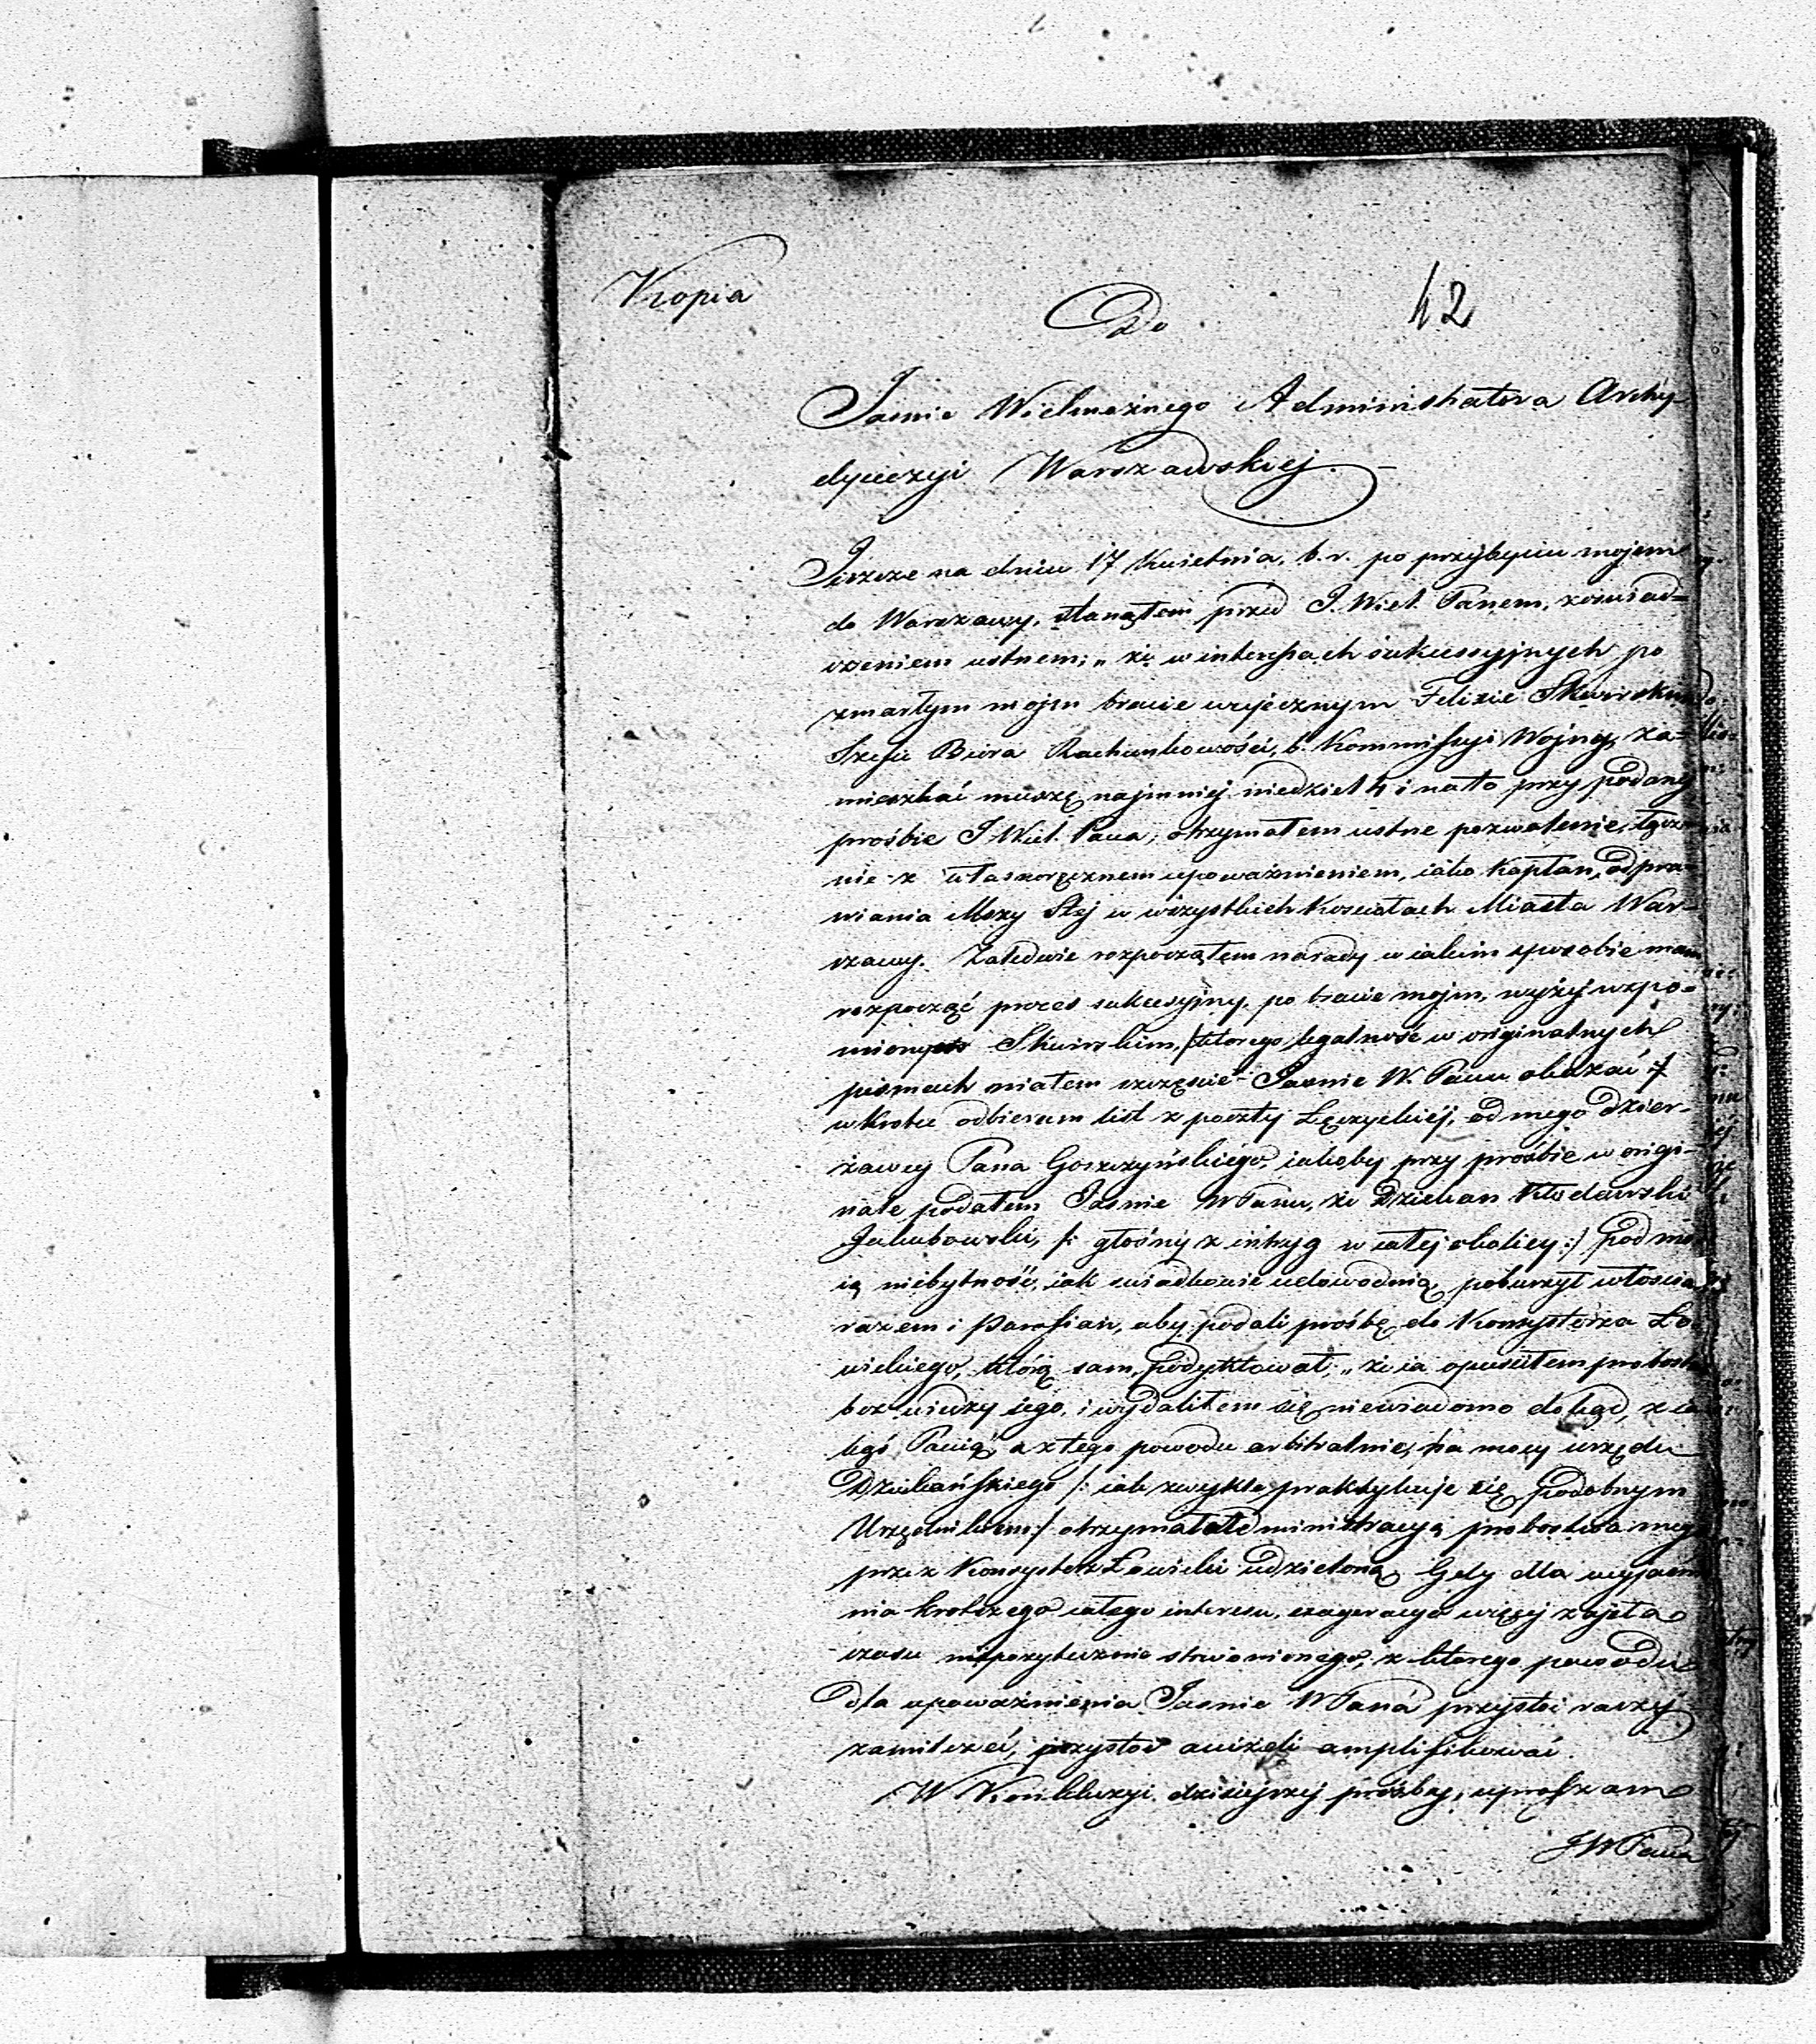 Kopia
Do
42
Jaśnie Wielmożnego Administratora Archy-
dyecezyi Warszawskiej.
Jeszcze na dniu 17 Kwietnia, b. r. po przybyciu mojem
do Warszawy, stanąłem przed J. Wiel. Panem, z oświad=
czeniem ustnem; „ że w interessach sukcessyjnych po
zmarłym mojm bracie wujecznym Felixie Skwirskim
Szefie Biura Rachunkowości, b. Kommissyi Wojny, za=
mieszkać muszę najmniej niedziel 4 i na to przy podanej
prośbie J. Wiel. Pana, otrzymałem ustne pozwolenie, łącz
nie z własnoręcznem upoważnieniem, iako Kapłan, odpra=
wiania Mszy Stej w wszystkich Kościołach Miasta War-
szawy. Zaledwie rozpocząłem narady w iakim sposobie mam
rozpocząć proces sukcesyjny, po bracie mojm, wyżej wspo=
mionym Skwirskim, /: którego legalność w originalnych
pismach miałem szczęście Jaśnie W. Panu okazać :/
wkrótce odbieram list z poczty Łęczyckiej, od mego dzier-
żawcy Pana Goszczyńskiego, iakoby przy prośbie w origi-
nale podałem Jaśnie W Panu, że Dziekan Kłodawski
Jakubowski, /: głośny z intryg w całej okolicy :/ pod mo
ią niebytność, iak świadkowie udowodnią, poburzył włościan
razem i Parafian, aby podali prośbę do Konsystorza Ło
wickiego, którą sam podyktował; „ że ia opuściłem probostwo
bez wiedzy iego, i wydaliłem się niewiadomo dokąd, z ia
kąś Panią, a z tego powodu arbitralnie, na mocy urzędu
Dziekańskiego /: iak zwykle praktykuje się podobnym
Urzędnikom :/ otrzymał administracyą probostwa mego
przez Konsystorz Łowicki udzieloną. Gdy dla wyjaśnie
nia krótszego całego interesu, exageracya więcej zajęła
czasu niepożytecznie strwonionego, z którego powodu
dla upoważnienia Jaśnie W Pana przystoi raczej
zamilczeć, aniżeli amplifikować.
W Konkluzyi dzisiejszej prośby, upraszam
JW Pana